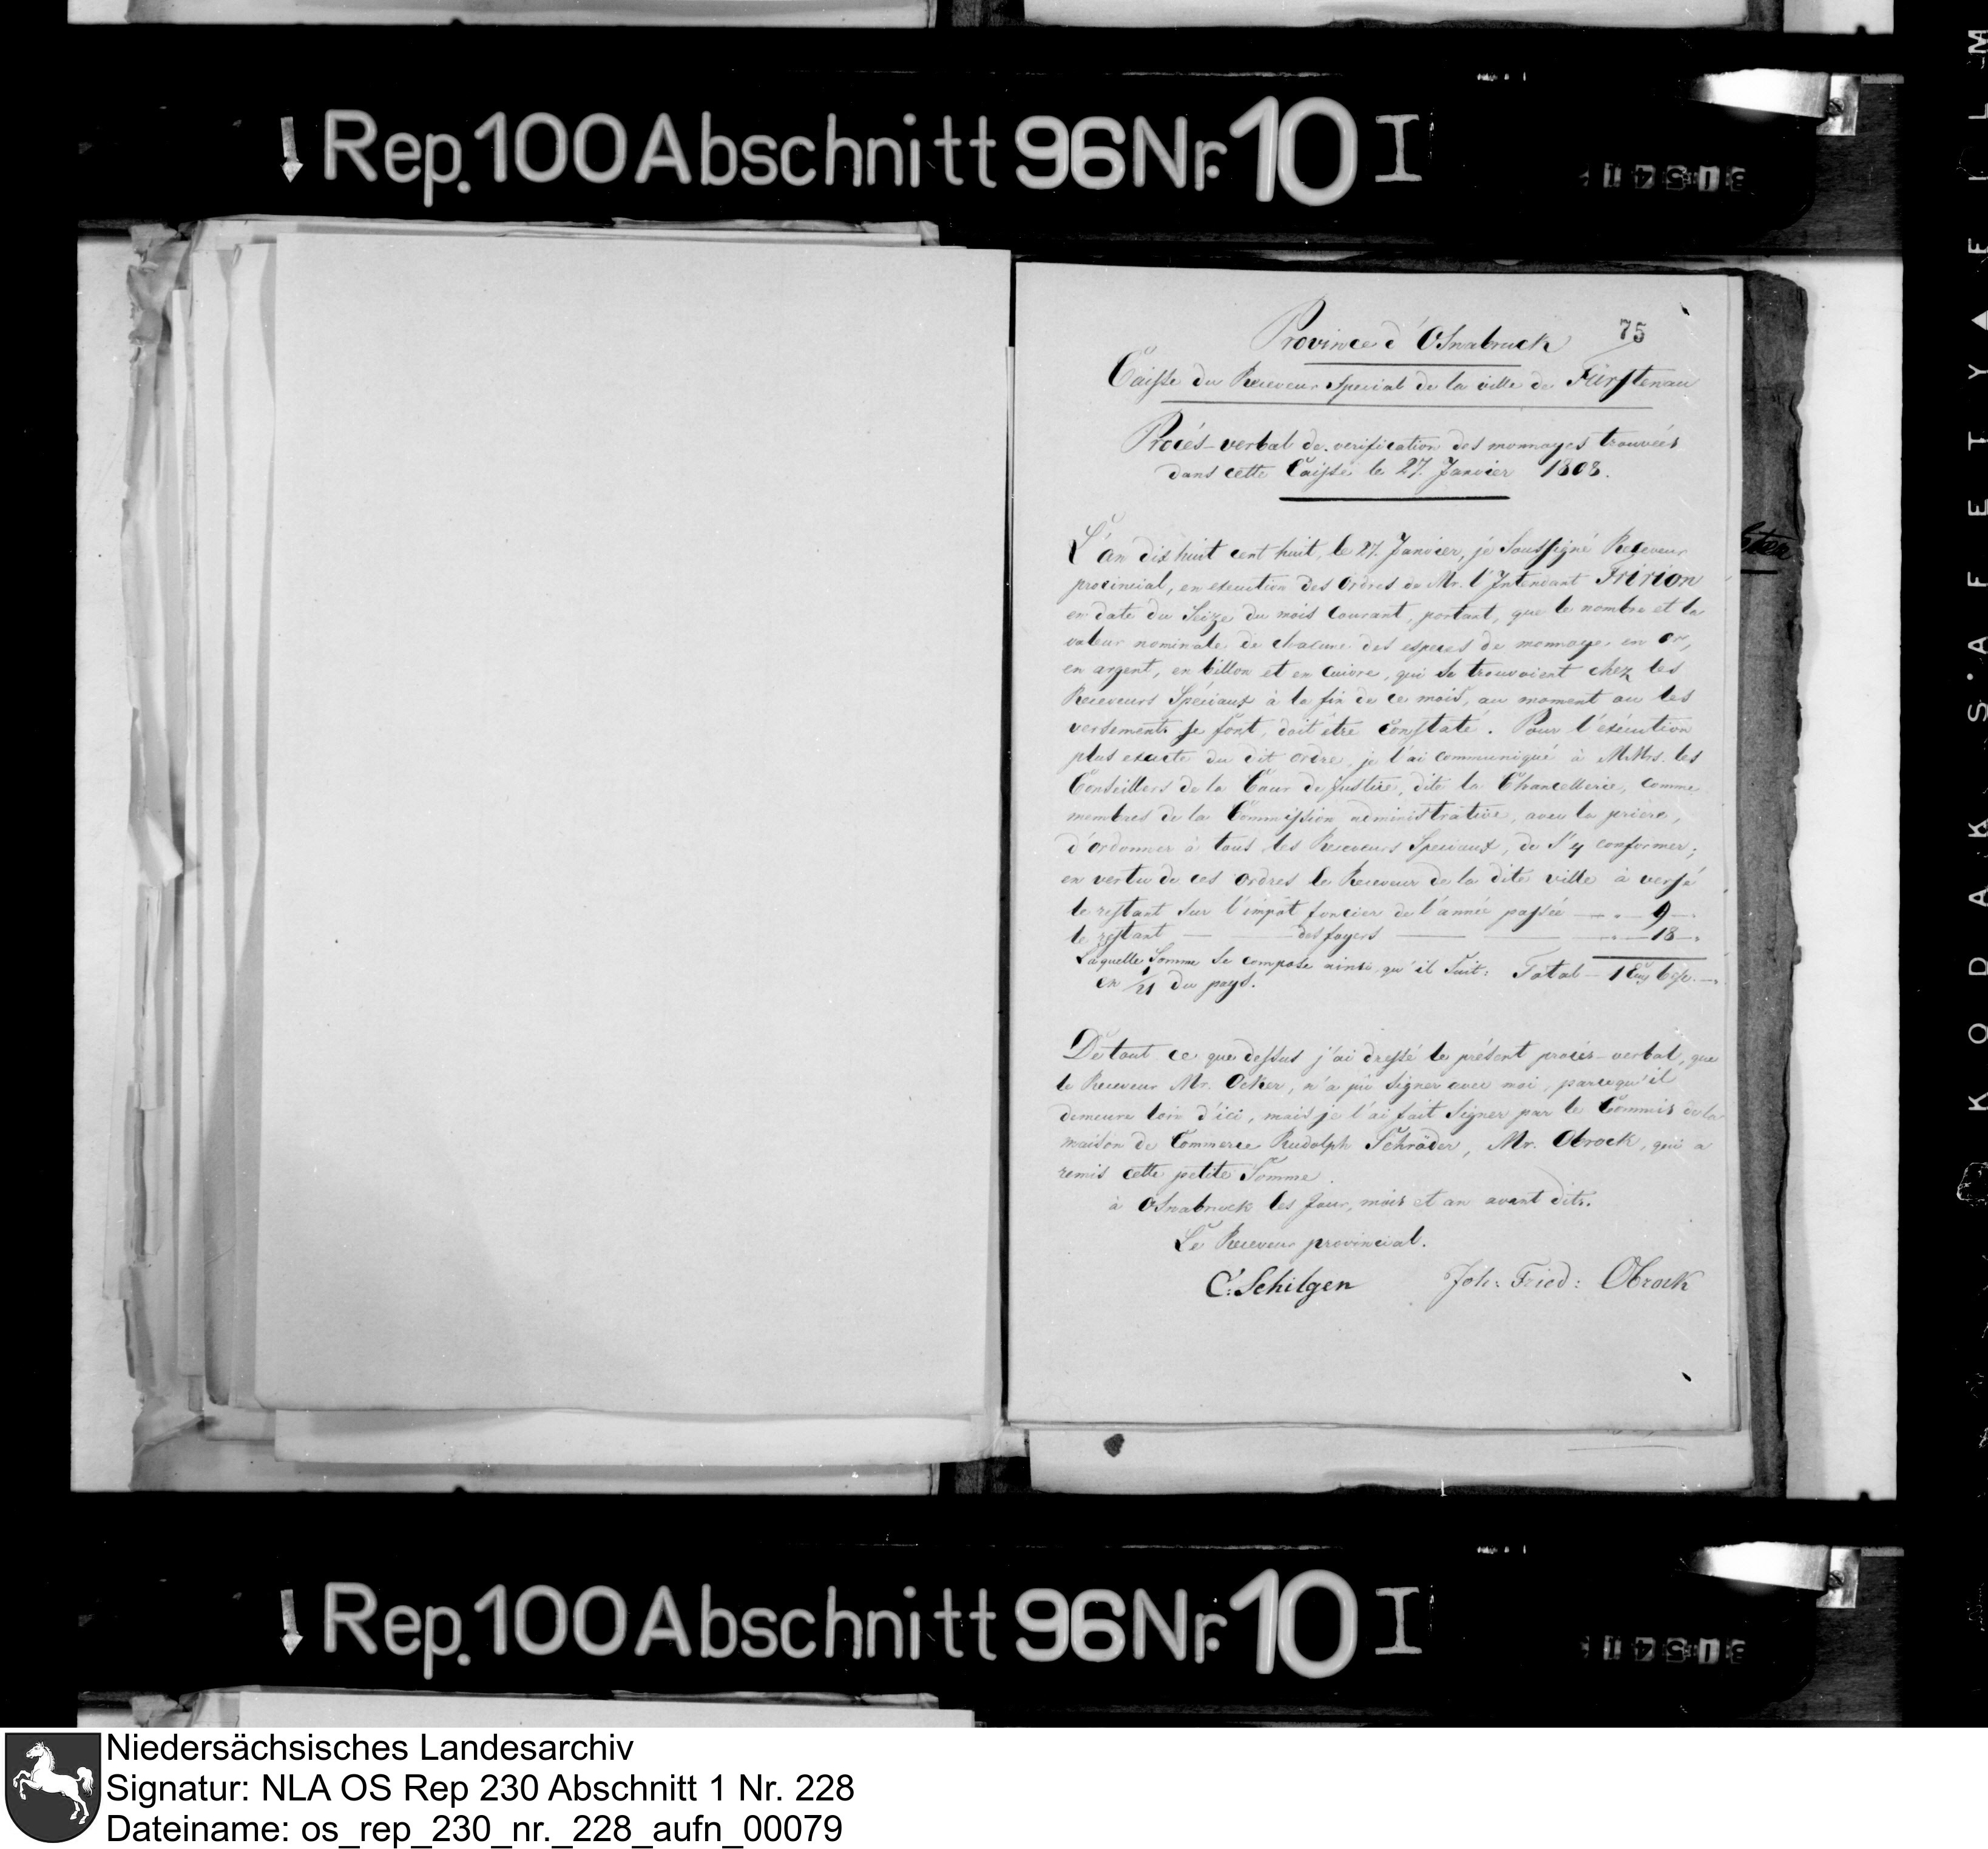 Rep. 100 Abschnitt 96 Nr. 10 I
75
Province d'Osnabruck
Caisse du Receveur special de la ville de Fürstenau
Procés-verbal de verification des monnoyes trouvées
dans cette Caisse le 27. Janvier 1808.
L'an dix huit cent huit, le 27. Janvier, je Soussigné Receveur
provincial, en execution des Ordres de Mr. l'Intendant Fririon
en date du Seize du mois Courant, portant, que le nombre et la
valeur nominale de chacune des especes de monnoye, en or,
en argent, en billon et en Cuivre, qui se trouvoient chez les
Receveurs Speciaux à la fin de ce mois, au moment ou les
versements se font, doit être Constaté. Pour l'exécution
plus exacte du dit ordre, je l'ai communiqué à MMrs. les
Conseillers de la Cour de justice, dite la Chancellerie, comme
membres de la Commission administrative, avec la priere,
d'ordonner à tous les Receveurs Speciaux, de s'y conformer;
en vertu de ces Ordres le Receveur de la dite ville à versé
le restant Sur l'impôt foncier de l'année passée — . — 9 — .
le restant — — des foyers — — — . — 18 — .
Laquelle Somme Se compose ainsi, qu'il Suit: Total — 1
en 1/21 du pays.
De tout ce que dessus j'ai dressé le présent procés-verbal, que
le Receveur Mr. Ocker, n'a pû signer avec moi, parcequ'il
demeure loin d'ici, mais je l'ai fait Signer par le Commis de la
maison de Commerce Rudolph Schröder, Mr. Obrock, qui a
remis cette petite Somme.
à Osnabruck les Jour, mois et an avant dits.
Le Receveur provincial.
C. Schilgen Joh: Fried: Obrock
Rep. 100 Abschnitt 96 Nr. 10 I
KODAK SAFETY FILM
Niedersächsisches Landesarchiv
Signatur: NLA OS Rep 230 Abschnitt 1 Nr. 228
Dateiname: os_rep_230_nr._228_aufn_00079